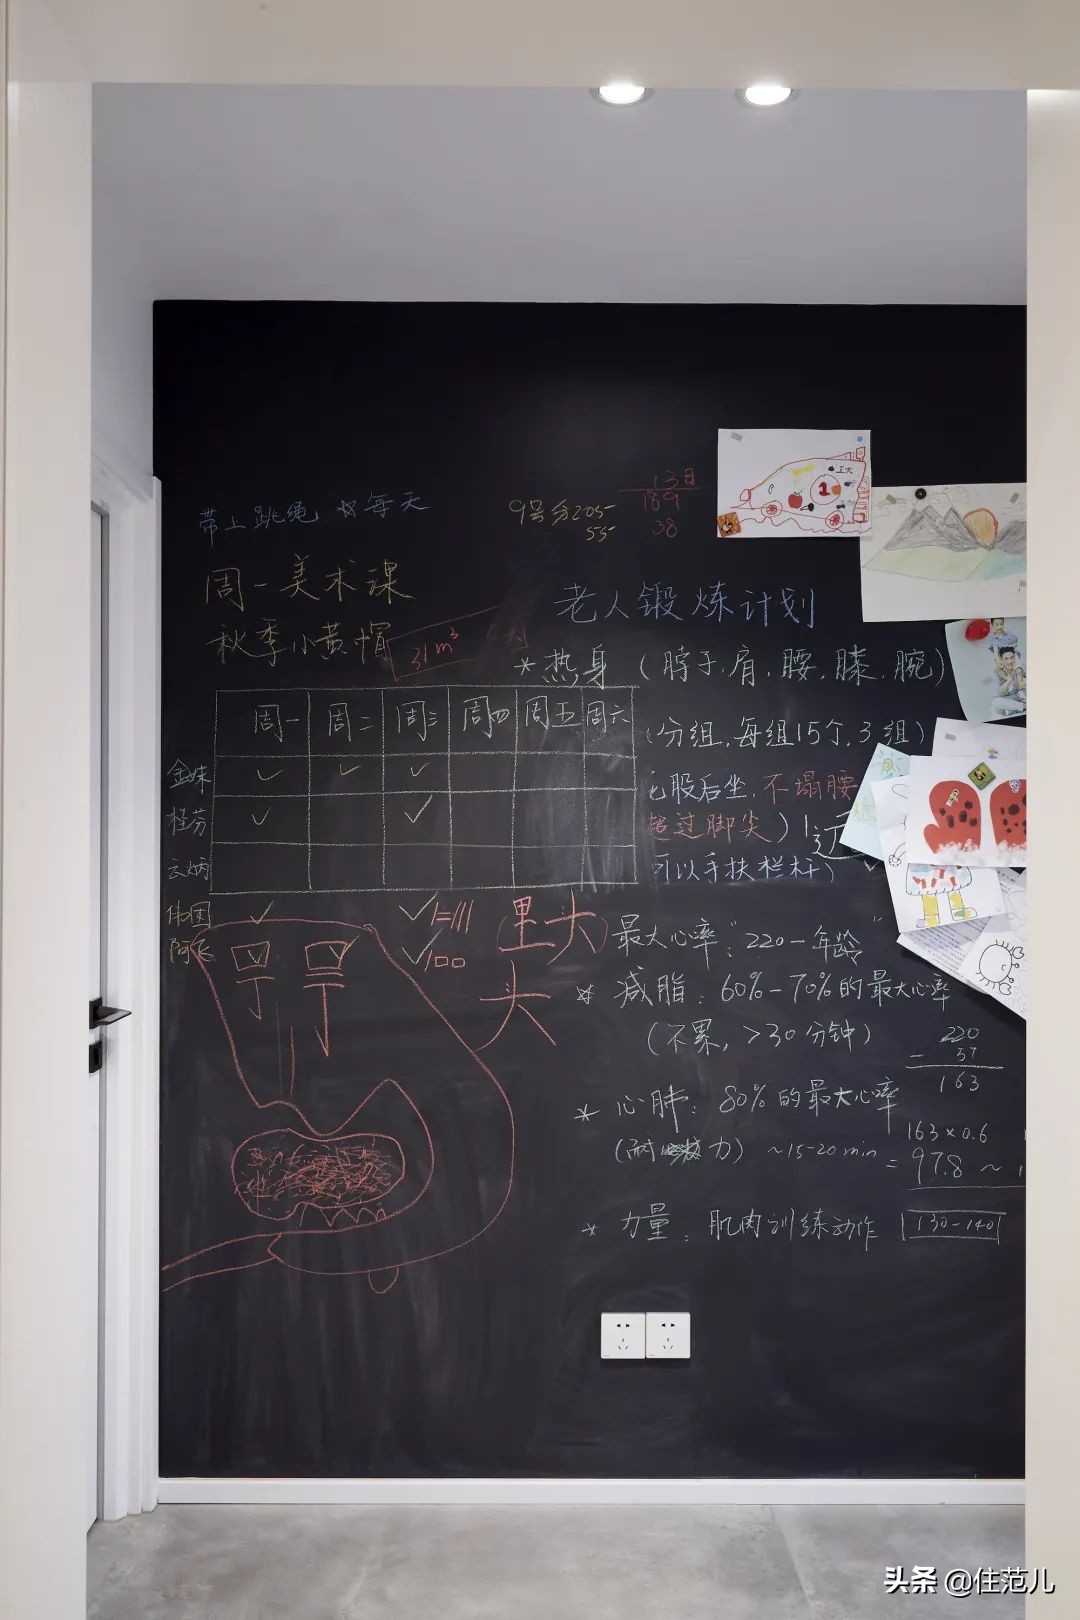 带上跳绳 每天
周一美术课
秋季小黄帽
31m³
9号 205
55
13日
189
38
老人锻炼计划
*热身（脖子,肩,腰,膝,腕）
（分组,每组15个,3组）
屁股后坐,不塌腰
超过脚尖）
可以手扶栏杆）
周一 周二 周三 周四 周五 周六
金妹 ✓ ✓ ✓
桂芬 ✓ ✓
云炳
✓ ✓
阿飞 ✓ ✓ ✓
里头
头
最大心率："220-年龄"
* 减脂：60%-70%的最大心率
（不累，>30分钟）
220
- 57
163
* 心肺：80%的最大心率
（耐力）~15-20min
163×0.6
=97.8~
* 力量：肌肉训练动作 130-140
头条 @住范儿